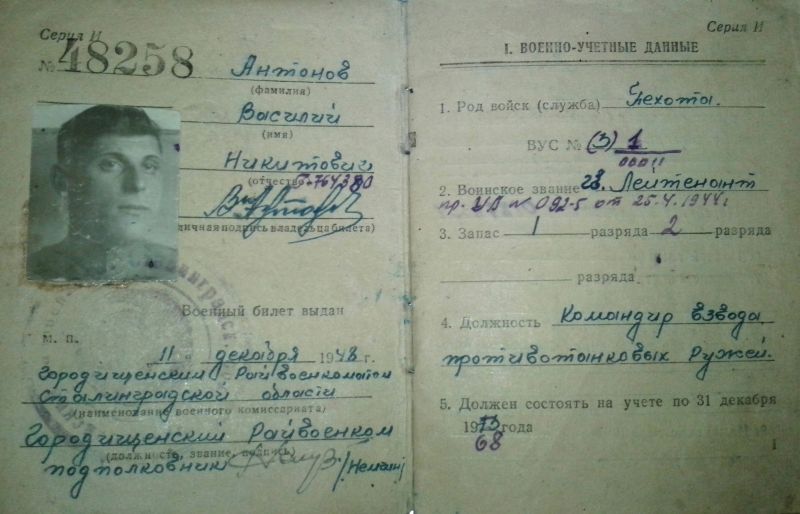 Серия И
№ 48258
Антонов
(фамилия)
Василий
(имя)
Никитович
(отчество) Г-764380
(личная подпись владельца билета)
Военный билет выдан
м. п.
11 декабря 1948 г.
Городищенский Райвоенкоматом
Сталинградской области
(наименование военного комиссариата)
Городищенский Райвоенком
(должность, звание, подпись)
подполковник
Серия И
I. ВОЕННО-УЧЕТНЫЕ ДАННЫЕ
1. Род войск (служба) Пехота.
ВУС № (3) 1
2. Воинское звание гв. Лейтенант
пр. № 092-5 от 25.4.1944г
3. Запас 1 разряда 2 разряда
разряда
4. Должность Командир взвода
противотанковых Ружей.
5. Должен состоять на учете по 31 декабря
1973 года
68
1